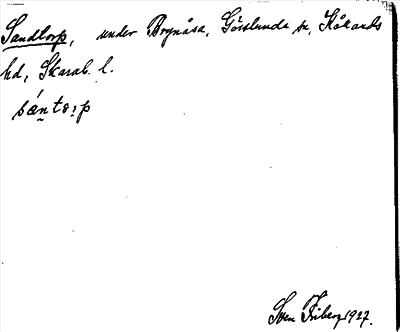 Sandtorp, under Brynåsa, Gösslunda sn, Kållands
hd, Skarab. l.
sántơrp
Sven Friberg 1927.